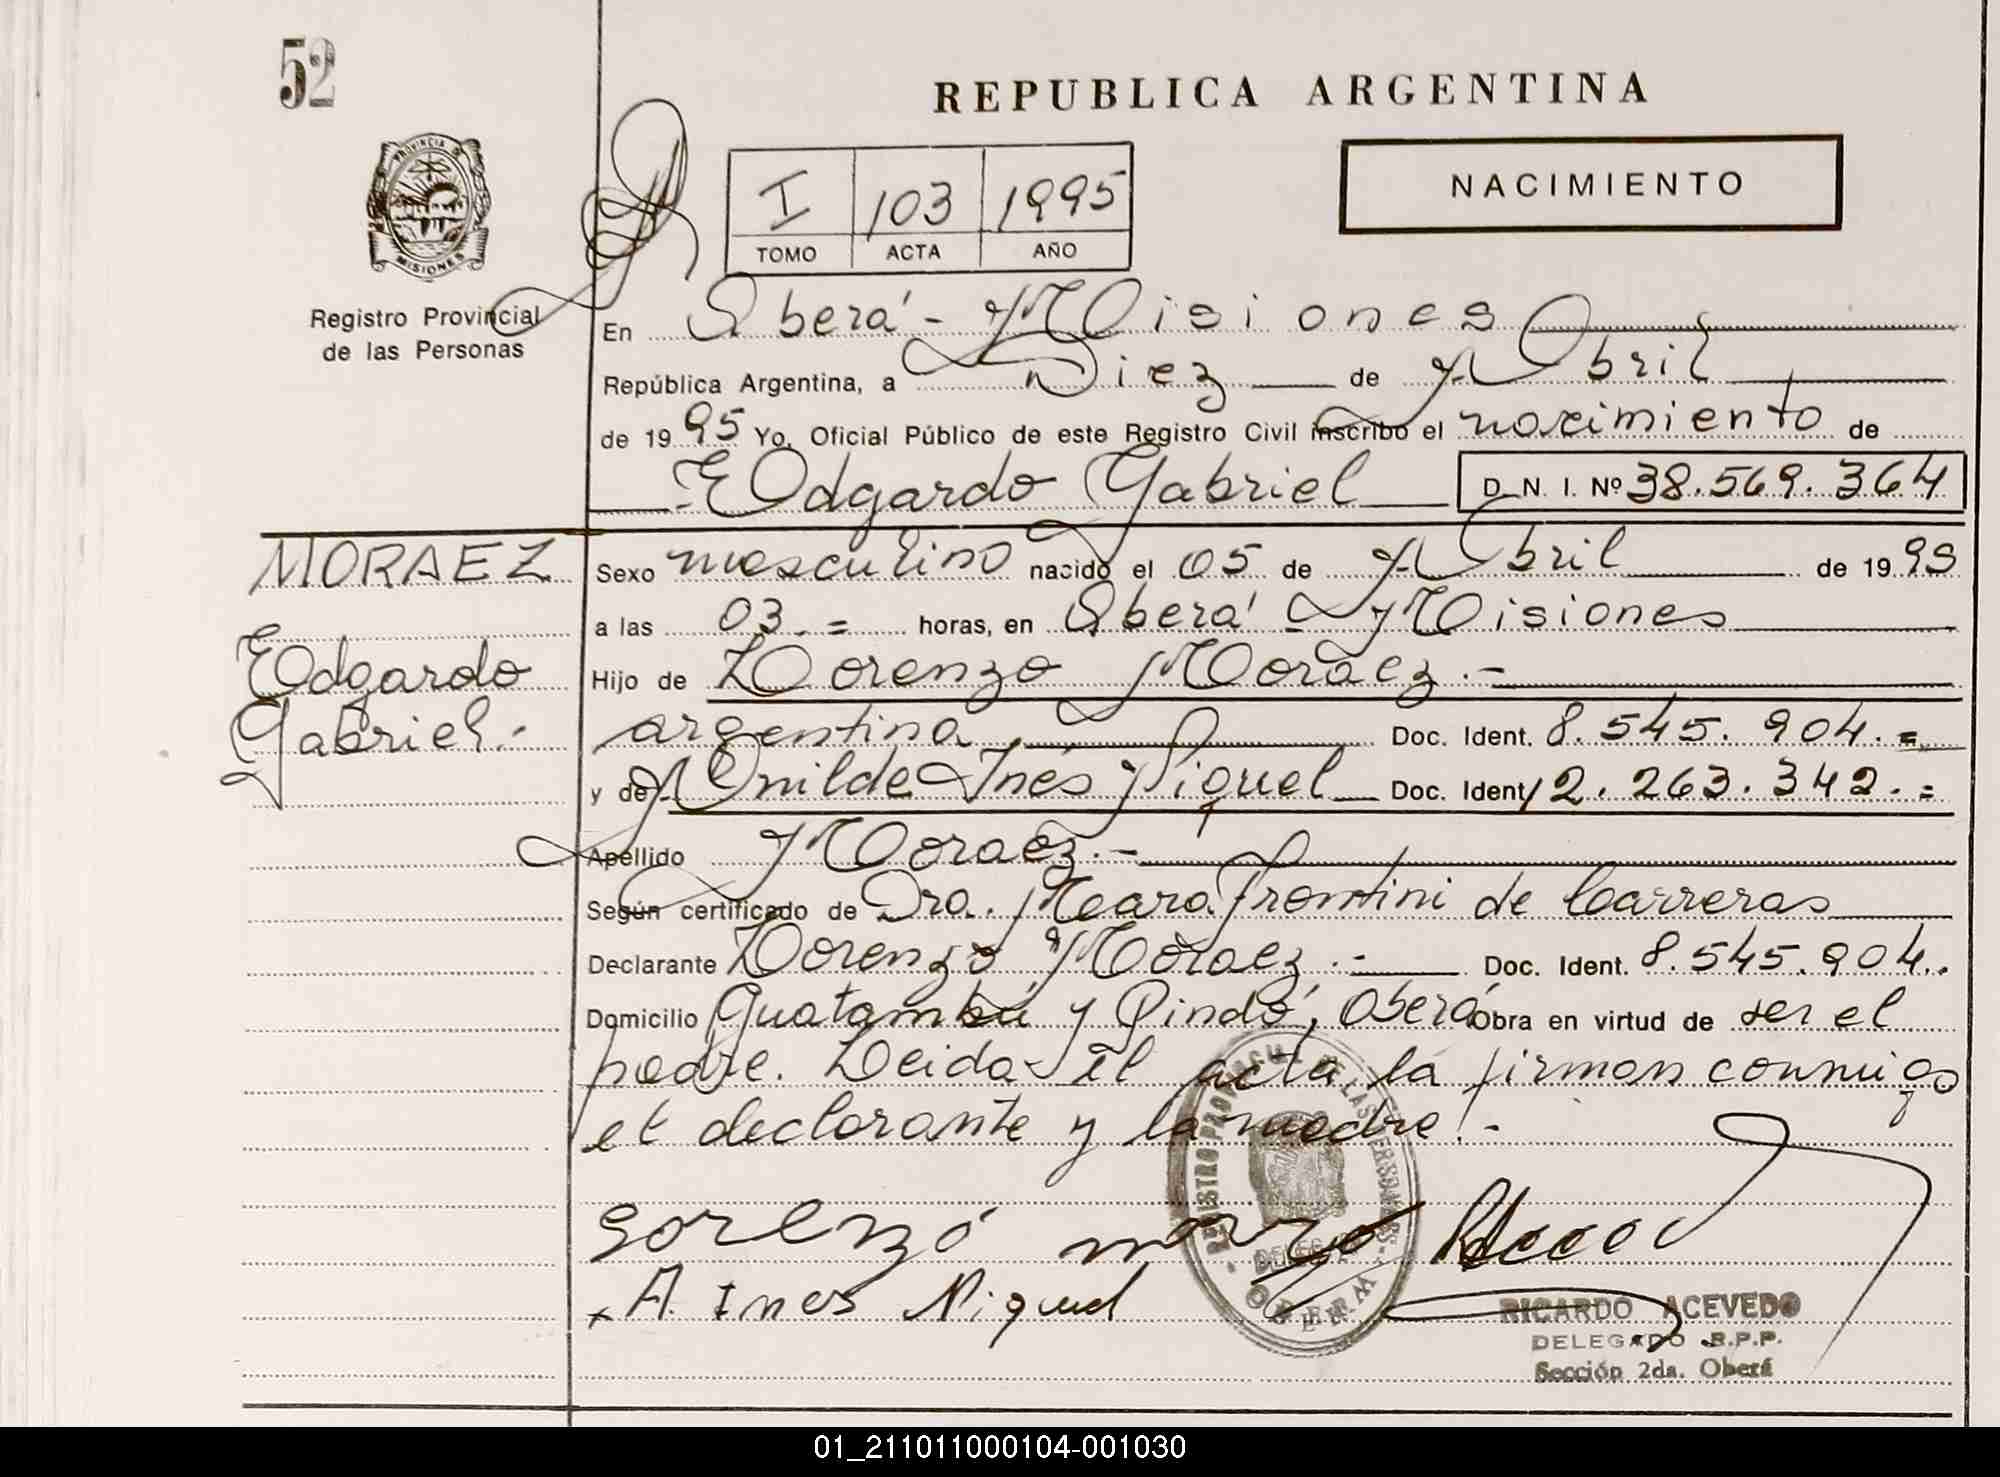 52
REPUBLICA ARGENTINA
PROVINCIA DE
MISIONES
Registro Provincial
de las Personas
I 103 1995
TOMO ACTA AÑO
NACIMIENTO
En Oberá - Misiones
República Argentina, a Diez de Abril
de 1995 Yo, Oficial Público de este Registro Civil inscribo el nacimiento de
Edgardo Gabriel D. N. I. Nº 38.569.364
MORAEZ
Edgardo
Gabriel.-
Sexo masculino nacido el 05 de Abril de 1995
a las 03.= horas, en Oberá - Misiones
Hijo de Lorenzo Moraez.-
argentina Doc. Ident. 8.545.904.=
y de Anilde Inés Piquel Doc. Ident 12.263.342.=
Apellido Moraez.-
Según certificado de Dra. Mara Frontini de Carreras
Declarante Lorenzo Moraez.- Doc. Ident. 8.545.904.
Domicilio Guatambú y Pindó, Oberá Obra en virtud de ser el
padre. Leida el acta la firman conmigo
el declarante y la madre.-
REGISTRO PROVINCIAL DE LAS PERSONAS
Lorenzo
A. Ines Piquel
RICARDO ACEVEDO
DELEGADO R.P.P.
Sección 2da. Oberá
01_211011000104-001030